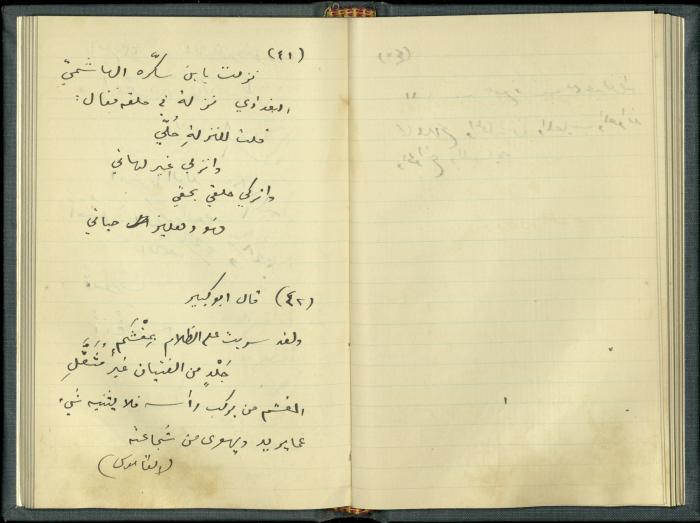 (٤١)
نزلت بابن سكّره الهاشميّ
البغدادي نزلة في حلقه فقال:
قلت للنزلةِ حُلّي
وانزلي غير لهاتي
واتركي حلقي بحقي
فهو دهليز حياتي
(٤٢) قال ابو كبير
ولقد سريت على الظلام بِمِغْشَمٍ
جَلْدٍ من الفتيان غَيْرِ مُثَقَّلِ
المغشم من يركب رأسه فلا يثنيه شيء
عما يريد ويهوى من شجاعته
(القاموس)